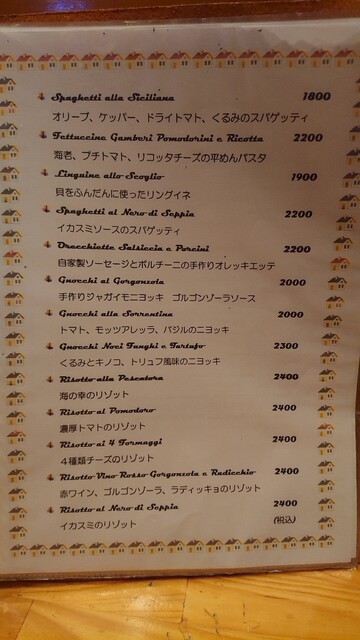 Spaghetti alla Siciliana 1800
オリーブ、ケッパー、ドライトマト、くるみのスパゲッティ
Fettuccine Gamberi Pomodorini e Ricotta 2200
海老、プチトマト、リコッタチーズの平めんパスタ
Linguine allo Scoglio 1900
貝をふんだんに使ったリングイネ
Spaghetti al Nero di Seppia 2200
イカスミソースのスパゲッティ
Orecchiette Salsiccia e Porcini 2200
自家製ソーセージとポルチーニの手作りオレッキエッテ
Gnocchi al Gorgonzola 2000
手作りジャガイモニョッキ ゴルゴンゾーラソース
Gnocchi alla Sorrentina 2000
トマト、モッツアレッラ、バジルのニョッキ
Gnocchi Noci Funghi e Tartufo 2300
くるみとキノコ、トリュフ風味のニョッキ
Risotto alla Pescatora 2400
海の幸のリゾット
Risotto al Pomodoro 2400
濃厚トマトのリゾット
Risotto ai 4 Formaggi 2400
４種類チーズのリゾット
Risotto Vino Rosso Gorgonzola e Radicchio 2400
赤ワイン、ゴルゴンゾーラ、ラディッキョのリゾット
Risotto al Nero di Seppia 2400
イカスミのリゾット (税込)